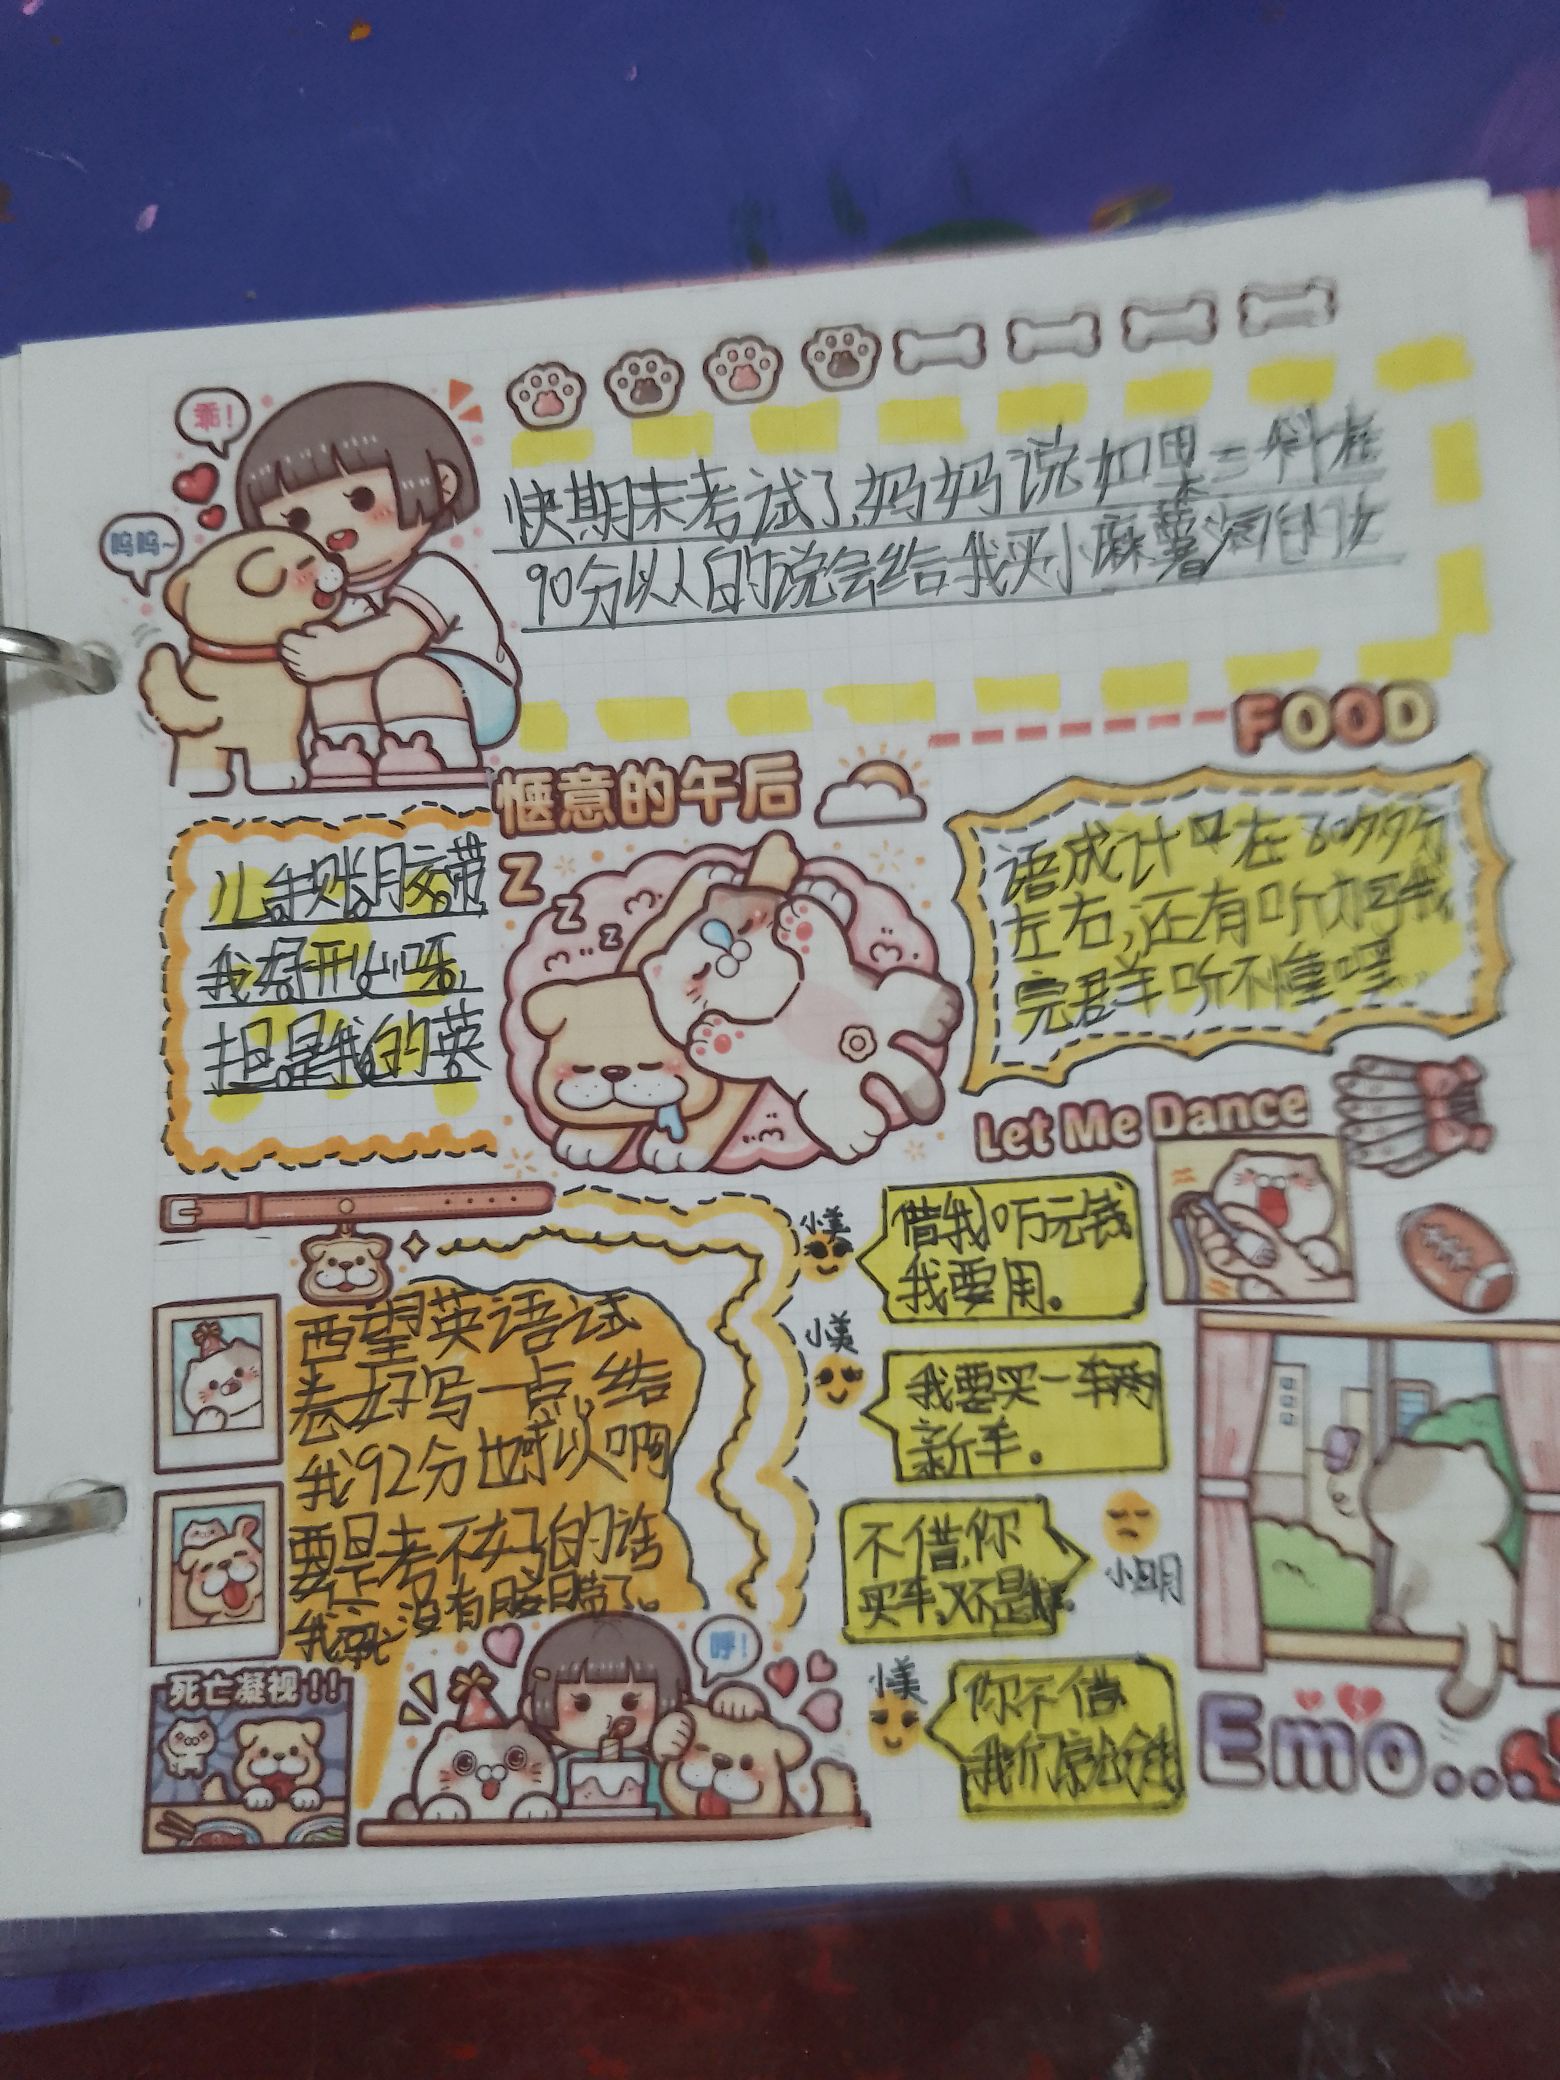 乖!
呜呜~
快期末考试了,妈妈说如果三科在
90分以人的说会给我买小麻薯
FOOD
惬意的午后
Z
Z
Z
儿 账月交带
我好开心呀,
担是我的英
语成计 在 多分
左右,还有听力
完 羊听不懂嘿
Let Me Dance
小美
借我 万元钱
我要用。
小美
我要买一车两
新羊。
不借,你
买车,又不是
小明
小美
你不借
我们
西望英语试
卷好写一点,给
我92分也 以啊
要是考不好的话
我就没有胶带了。
呼!
死亡凝视!!
Emo...